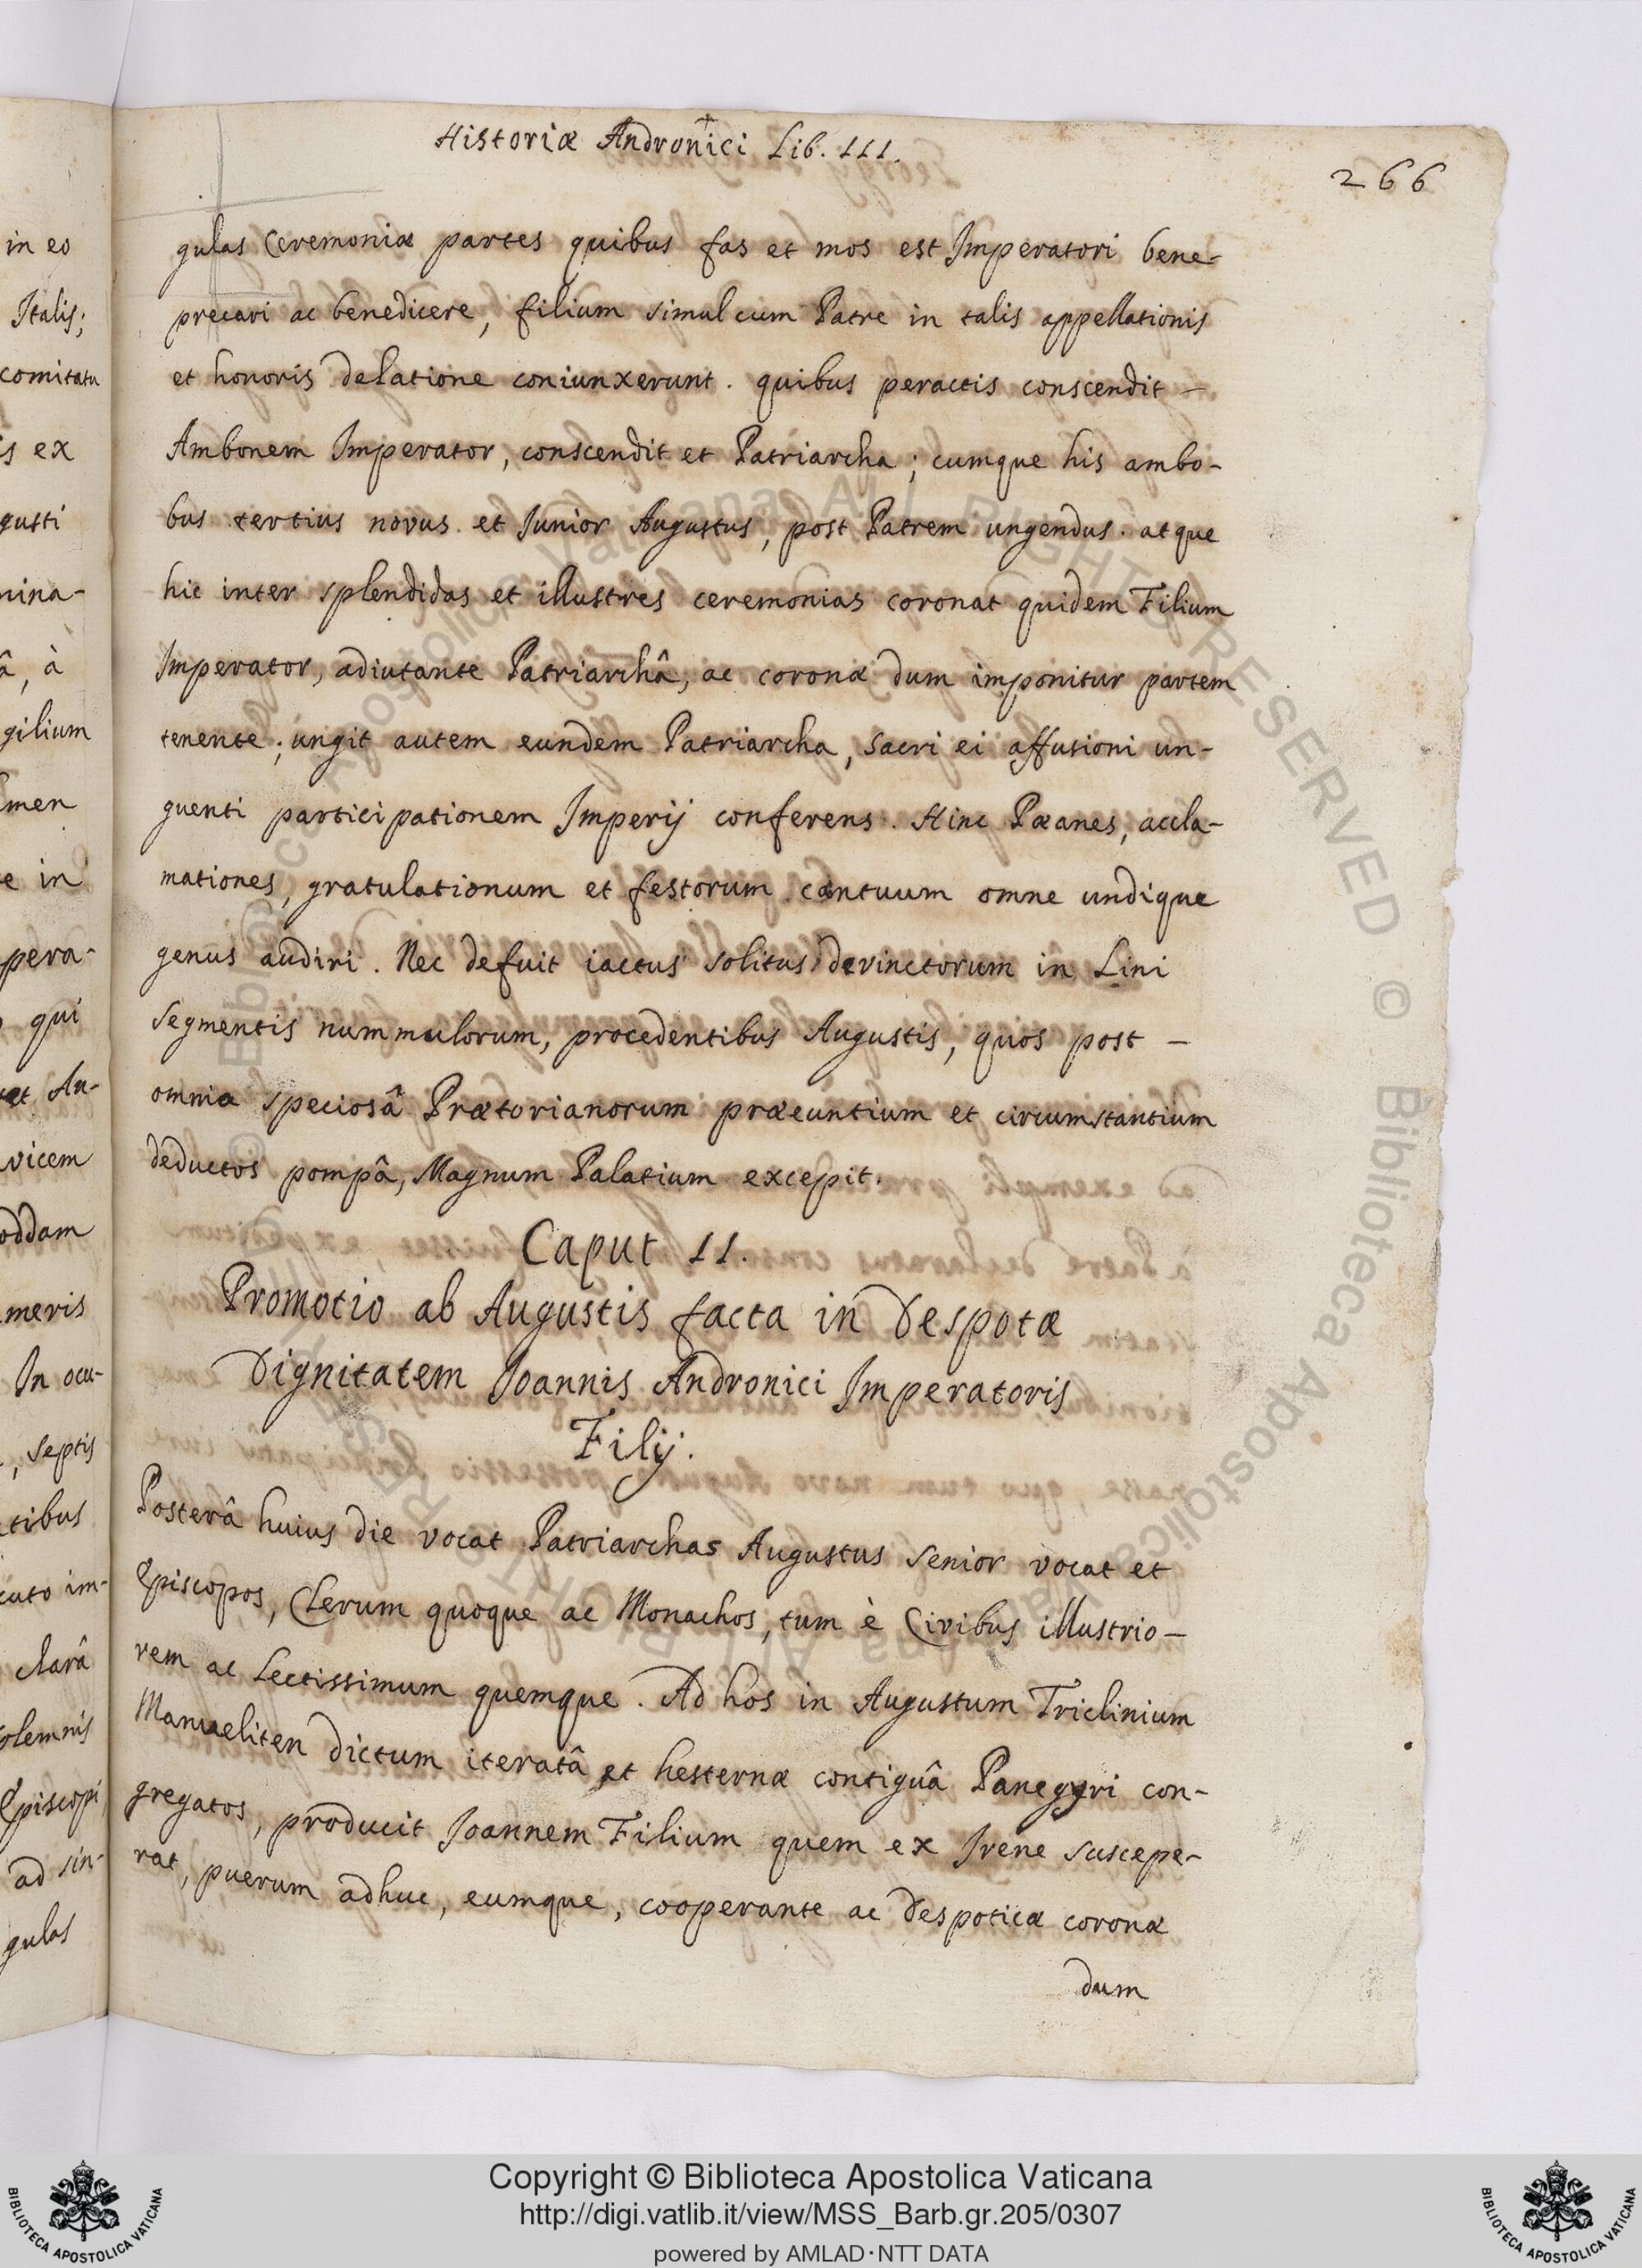 Historiæ Andronici Lib. III.
266
in eo
Italis;
comitatu
is ex
gusti
mina-
â, à
gilium
men
e in
pera-
qui
et Au-
vicem
oddam
meris
In ocu-
, septis
tibus
cuto im-
clarâ
olemnis
Episcopi
ad sin-
gulas
gulas Ceremoniæ partes quibus fas et mos est Imperatori bene-
precari ac benedicere, filium simul cum Patre in talis appellationis
et honoris delatione coniunxerunt. quibus peractis conscendit -
Ambonem Imperator, conscendit et Patriarcha; cumque his ambo-
bus tertius novus et Iunior Augustus, post Patrem ungendus. atque
hic inter splendidas et illustres ceremonias coronat quidem Filium
Imperator, adiutante Patriarchâ, ac coronæ dum imponitur partem
tenente; ungit autem eundem Patriarcha, sacri ei affusioni un-
guenti participationem Imperij conferens. Hinc Pæanes, accla-
mationes, gratulationum et festorum cantuum omne undique
genus audiri. Nec defuit iactus solitus devinctorum in Lini
segmentis nummulorum, procedentibus Augustis, quos post -
omnia speciosâ Prætorianorum præeuntium et circumstantium
deductos pompâ, Magnum Palatium excepit.
Caput II.
Promotio ab Augustis facta in Despotæ
Dignitatem Ioannis Andronici Imperatoris
Filij.
Posterâ huius die vocat Patriarchas Augustus senior vocat et
Episcopos, Clerum quoque ac Monachos, tum è Civibus illustrio-
rem ac Lectissimum quemque. Ad hos in Augustum Triclinium
Manueliten dictum iteratâ et hesternæ contiguâ Panegyri con-
gregatos, producit Ioannem Filium quem ex Irene suscepe-
rat, puerum adhuc, eumque, cooperante ac Despoticæ coronæ
dum
© Biblioteca Apostolica Vaticana ALL RIGHTS RESERVED
© Biblioteca Apostolica Vaticana ALL RIGHTS RESERVED
Copyright © Biblioteca Apostolica Vaticana
http://digi.vatlib.it/view/MSS_Barb.gr.205/0307
powered by AMLAD·NTT DATA
BIBLIOTECA APOSTOLICA VATICANA
BIBLIOTECA APOSTOLICA VATICANA